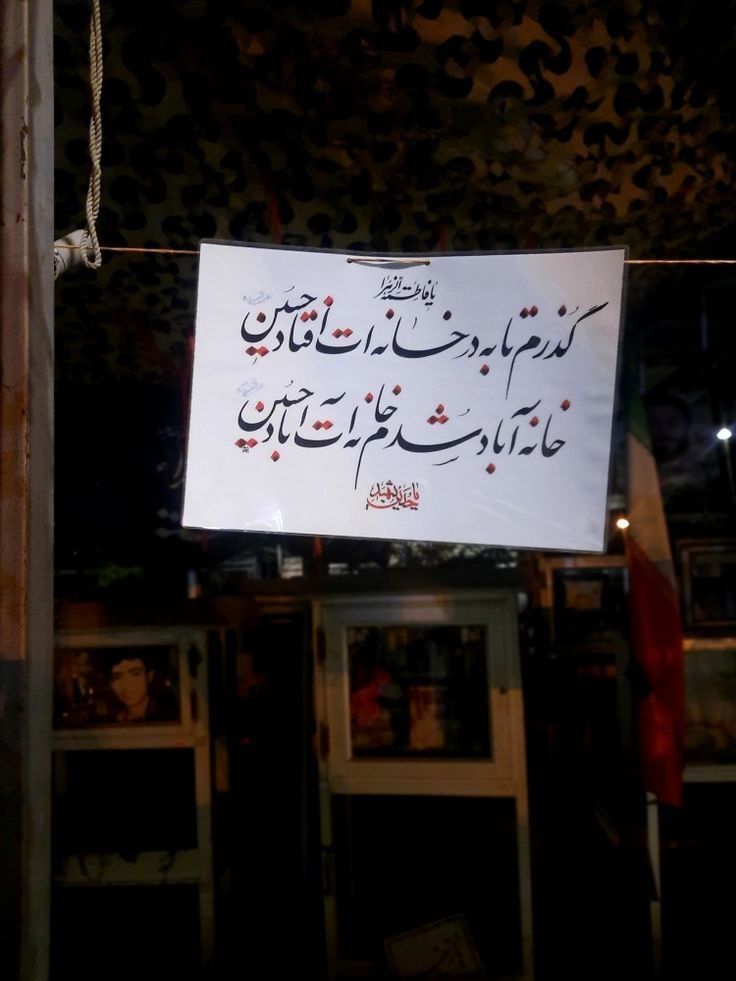 یا فاطمة الزهرا
گذرم تا به در خانه ات افتاد حسین
خانه آباد شدم خانه ات آباد حسین